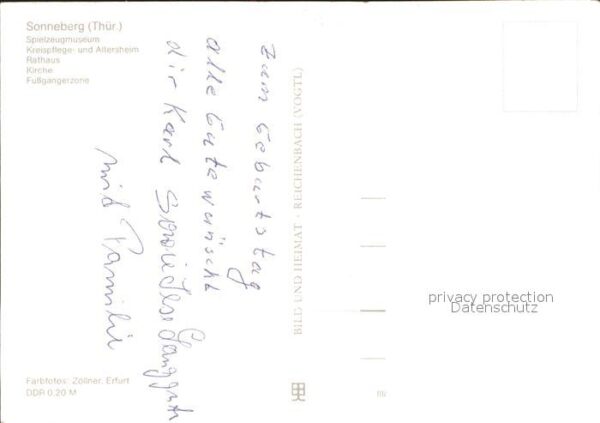 Sonneberg (Thür.)
Spielzeugmuseum
Kreispflege- und Altersheim
Rathaus
Kirche
Fußgängerzone
Zum Geburtstag
alle Gute wünscht
dir Karl sowie Ilse
mit Familie
BILD UND HEIMAT · REICHENBACH (VOGTL)
privacy protection
Datenschutz
Farbfotos: Zöllner, Erfurt
DDR 0,20 M